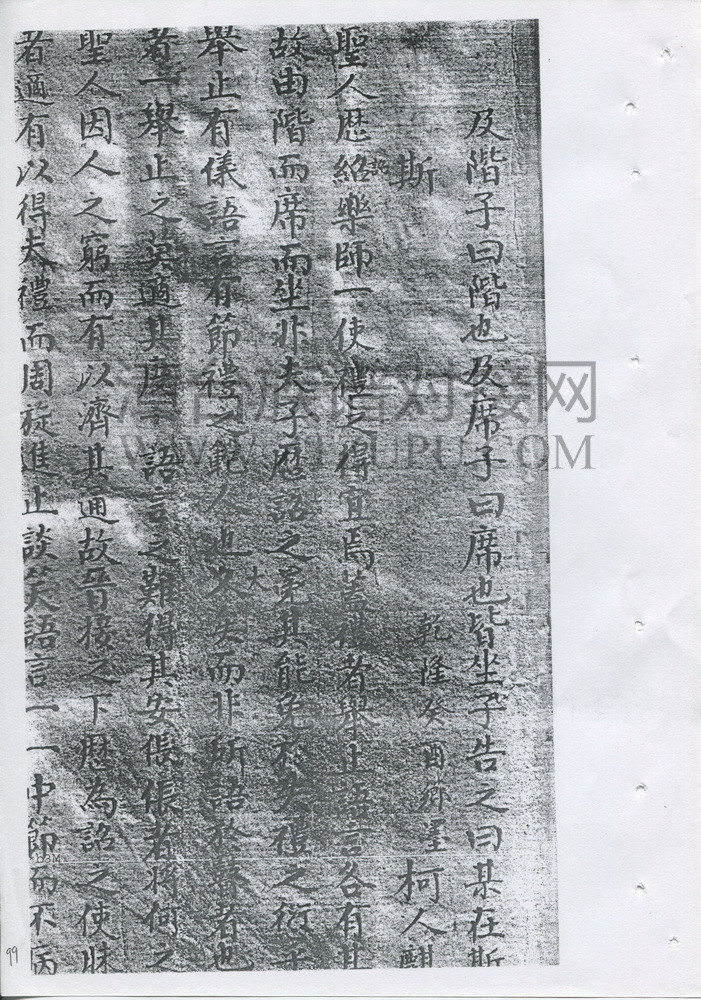 及階子曰階也及席子曰席也皆坐子告之曰某在斯
斯
乾隆癸酉鄉墨 柯人麒
聖人歷紹樂師一使禮之得宜焉蓋禮者舉止語言各有其
詔
故由階而席而坐非夫子歷詔之克其能免於失禮之
舉止有儀語言有節禮之範人也久矣而非所語於瞽者也
大
者一舉止之莫適其度一語言之難得其安倀倀者將何之
聖人因人之窮而有以濟其通故晉接之下歷為詔之使昧
者適有以得夫禮而周旋進止談笑語言一一中節而不病
WWW.
UPU.COM
族譜對接网
99